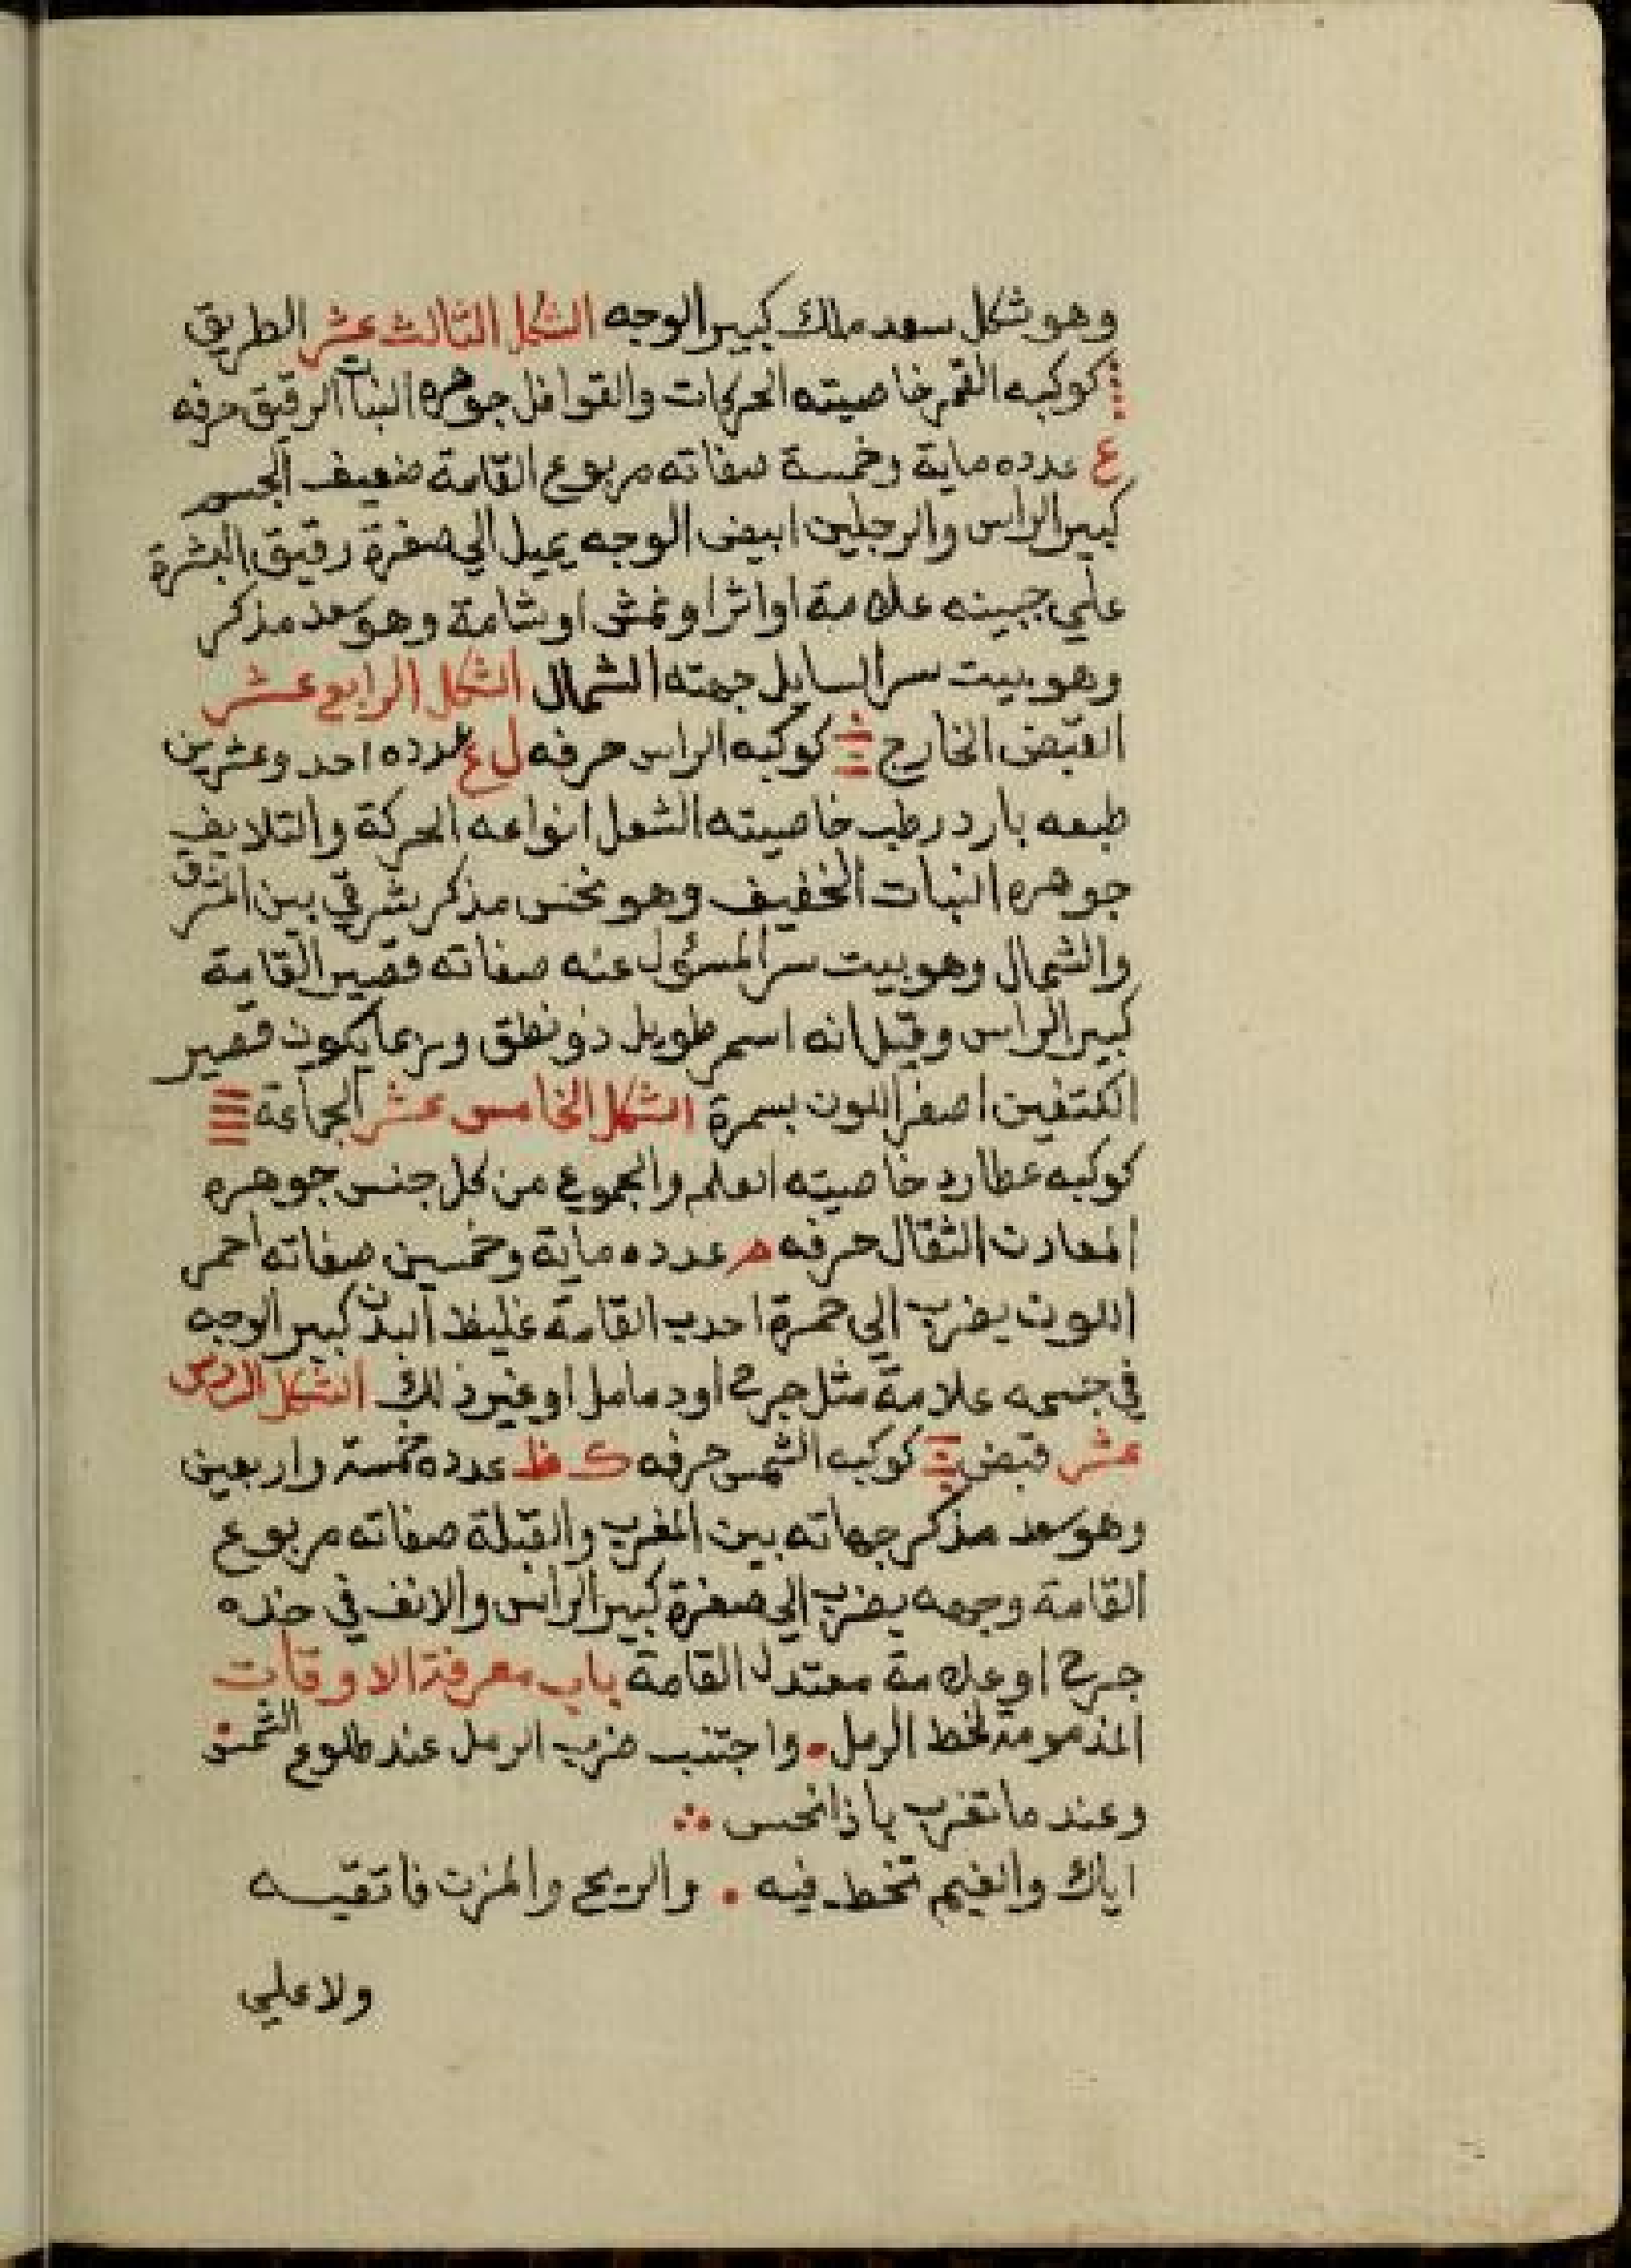 وهو شكل سعد ملك كبير الوجه الشكل الثالث عشر الطريق
كوكبه القمر خاصيته الحركات والقوافل جوهره النبات الرقيق حرفه
ع عدده ماية وخمسة صفاته مربوع القامة ضعيف الجسم
كبير الراس والرجلين ابيض الوجه يميل الي صفرة رقيق البشرة
علي جبينه علامة او اثر او نمش او شامة وهو سعد مذكر
وهو بيت سر السايل جهته الشمال الشكل الرابع عشر
القبض الخارج كوكبه الراس حرفه ل ع عدده احد وعشرين
طبعه بارد رطب خاصيته الشعل انواعه الحركة والتلايف
جوهره النبات الخفيف وهو نحس مذكر شرقي بين المشرق
والشمال وهو بيت سر المسؤل عنه صفاته قصير القامة
كبير الراس وقيل انه اسمر طويل ذو نطق وربما يكون قصير
الكتفين اصفر اللون بسمرة الشكل الخامس عشر الجماعة
كوكبه عطارد خاصيته العلم والجموع من كل جنس جوهره
المعادن الثقال حرفه م عدده ماية وخمسين صفاته احمر
اللون يضرب الي حمرة احدب القامة غليظ البدن كبير الوجه
في جسمه علامة مثل جرح او دمامل او غير ذلك الشكل السادس
عشر قبض كوكبه الشمس حرفه ك ظ عدده خمسة واربعين
وهو سعد مذكر جهاته بين المغرب والقبلة صفاته مربوع
القامة وجهه يضرب الي صفرة كبير الراس والانف في خده
جرح او علامة معتدل القامة باب معرفة الاوقات
المذمومة لخط الرمل واجتنب ضرب الرمل عند طلوع الشمس
وعند ما تغرب يا ذا نحس
اياك والغيم تخط فيه والريح والمزن فاتقيه
ولا علي